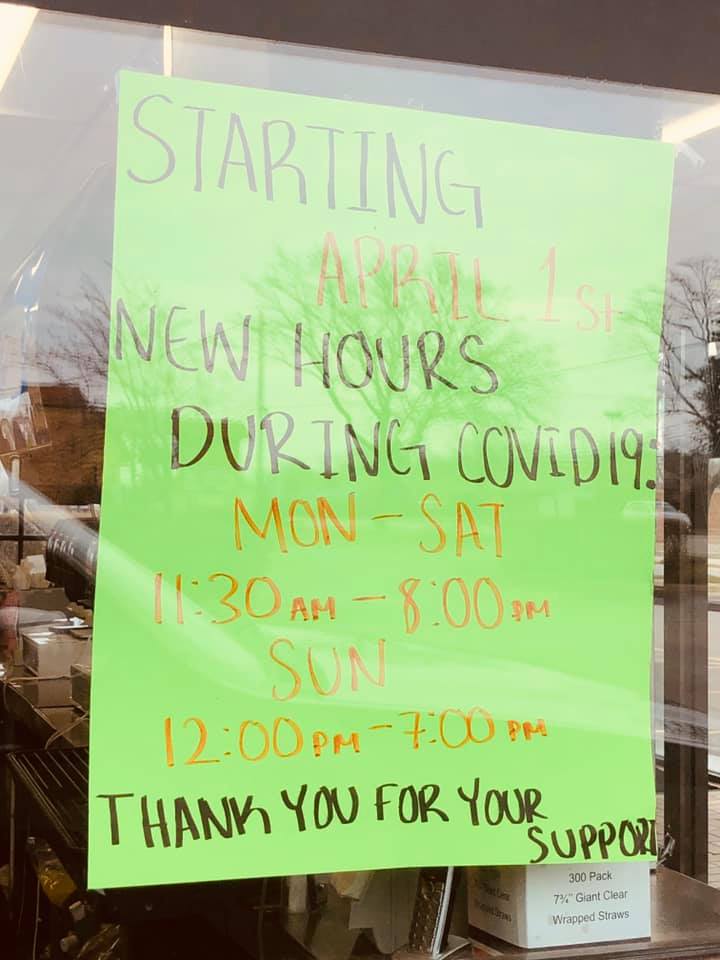 STARTING
APRIL 1st
NEW HOURS
DURING COVID19:
MON-SAT
11:30AM - 8:00PM
SUN
12:00PM - 7:00PM
THANK YOU FOR YOUR
SUPPORT
300 Pack
7¾" Giant Clear
Wrapped Straws